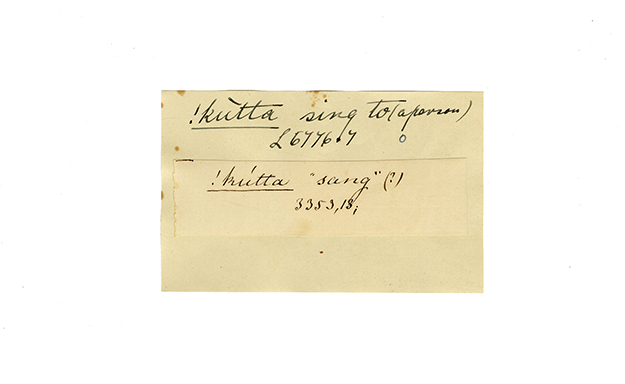 !kùtta sing to (a person)
L 6776.7
!kútta "sang" (?)
3353,13;